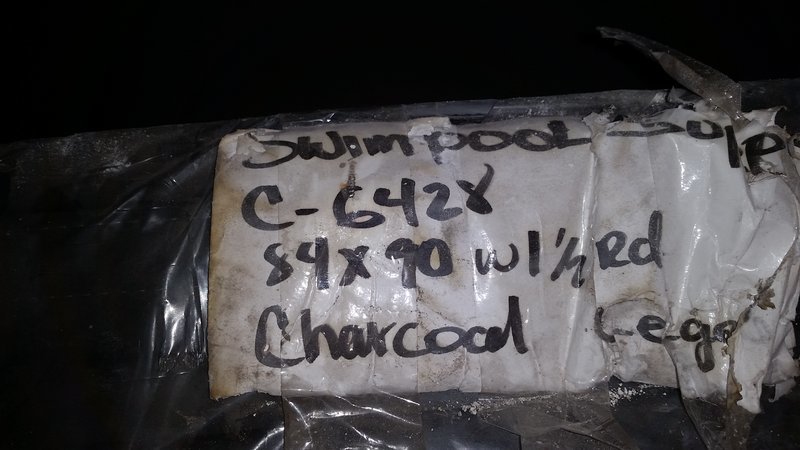 Swimpool Supp
C-6428
84x90 w/ 1/2 Rd
Charcoal Lege